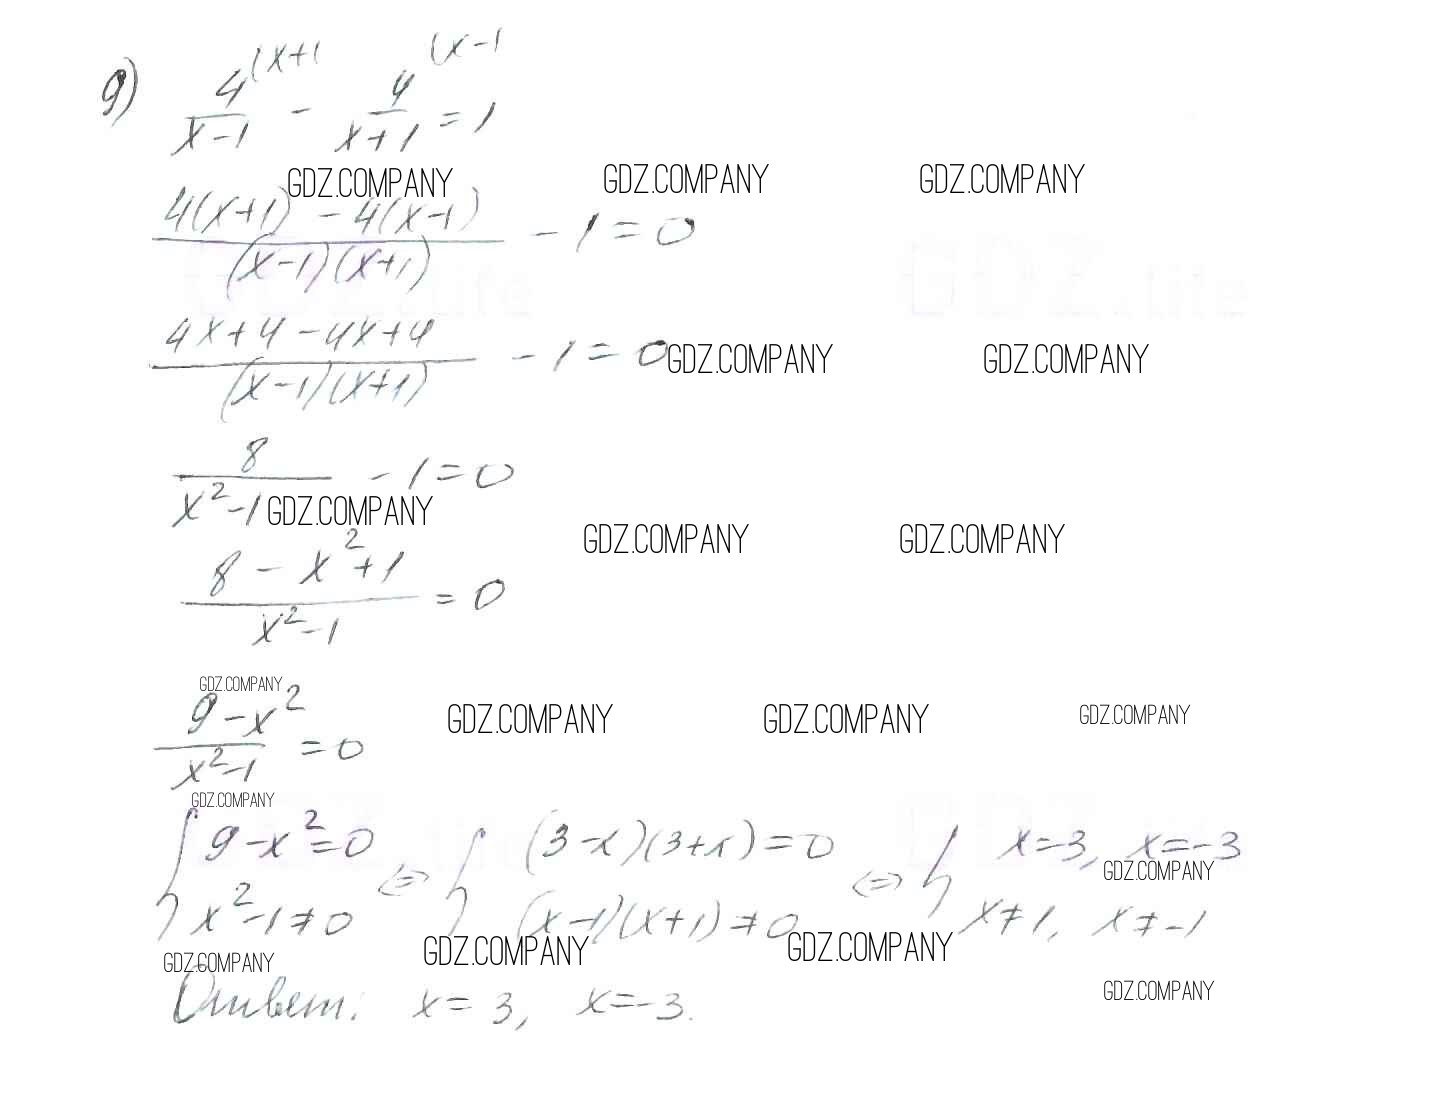 g) 4^(x+1 / x-1 - 4^(x-1 / x+1 = 1
GDZ.COMPANY GDZ.COMPANY GDZ.COMPANY
4(x+1) - 4(x-1) / (x-1)(x+1) - 1 = 0
GDZ.Life GDZ.Life
4x+4-4x+4 / (x-1)(x+1) - 1 = 0
GDZ.COMPANY GDZ.COMPANY
8 / x²-1 - 1 = 0
GDZ.COMPANY GDZ.COMPANY GDZ.COMPANY
8 - x²+1 / x²-1 = 0
GDZ.COMPANY
9-x² / x²-1 = 0
GDZ.COMPANY GDZ.COMPANY GDZ.COMPANY
GDZ.COMPANY
GDZ.Life GDZ
{ 9-x²=0 <=> { (3-x)(3+x)=0 <=> { x=3, x=-3
GDZ.COMPANY
x²-1≠0 (x-1)(x+1)≠0 x≠1, x≠-1
GDZ.COMPANY GDZ.COMPANY GDZ.COMPANY
Ответ: x=3, x=-3.
GDZ.COMPANY